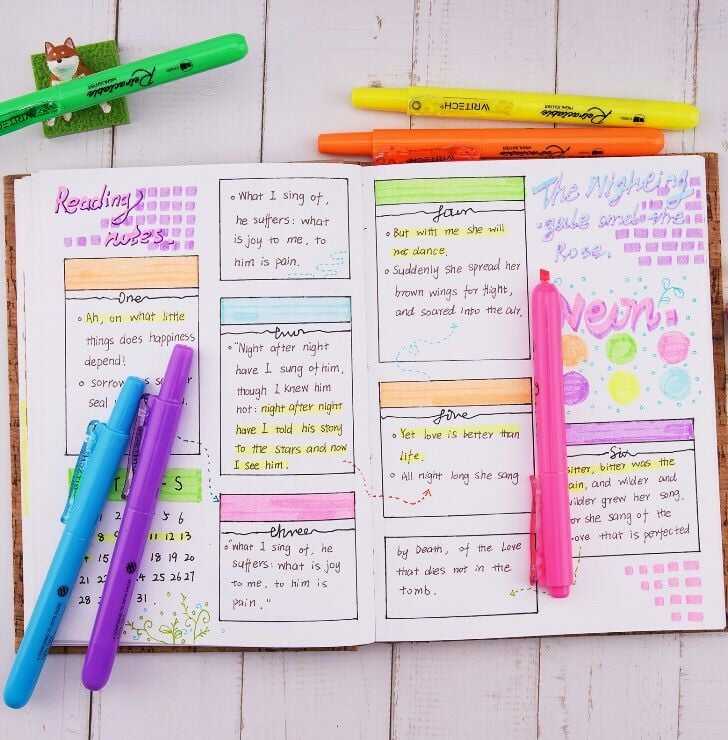 Retractable
HIGHLIGHTER
WRITECH
Retractable
HIGHLIGHTER
WRITECH
Retractable
Reading
notes.
One
Ah, on what little
things does happiness
depend!
sorrow
seal
S
6
8 9 11 12 13
15 18 19 20
21 22 24 25 26 27
28 31.
What I sing of,
he suffers: what
is joy to me, to
him is pain.
"Night after night
have I sung of him,
though I knew him
not: night after night
have I told his story
to the stars and now
I see him.
three
"what I sing of, he
suffers: what is joy
to me, to him is
pain."
But with me she will
not dance.
Suddenly she spread her
brown wings for flight,
and soared into the air.
five
Yet love is better than
life.
All night long she sang
by Death, of the Love
that dies not in the
tomb.
The Nighting
-gale and the
Rose.
Six
bitter was the
and wilder and
wilder grew her song,
she sang of the
that is perfected